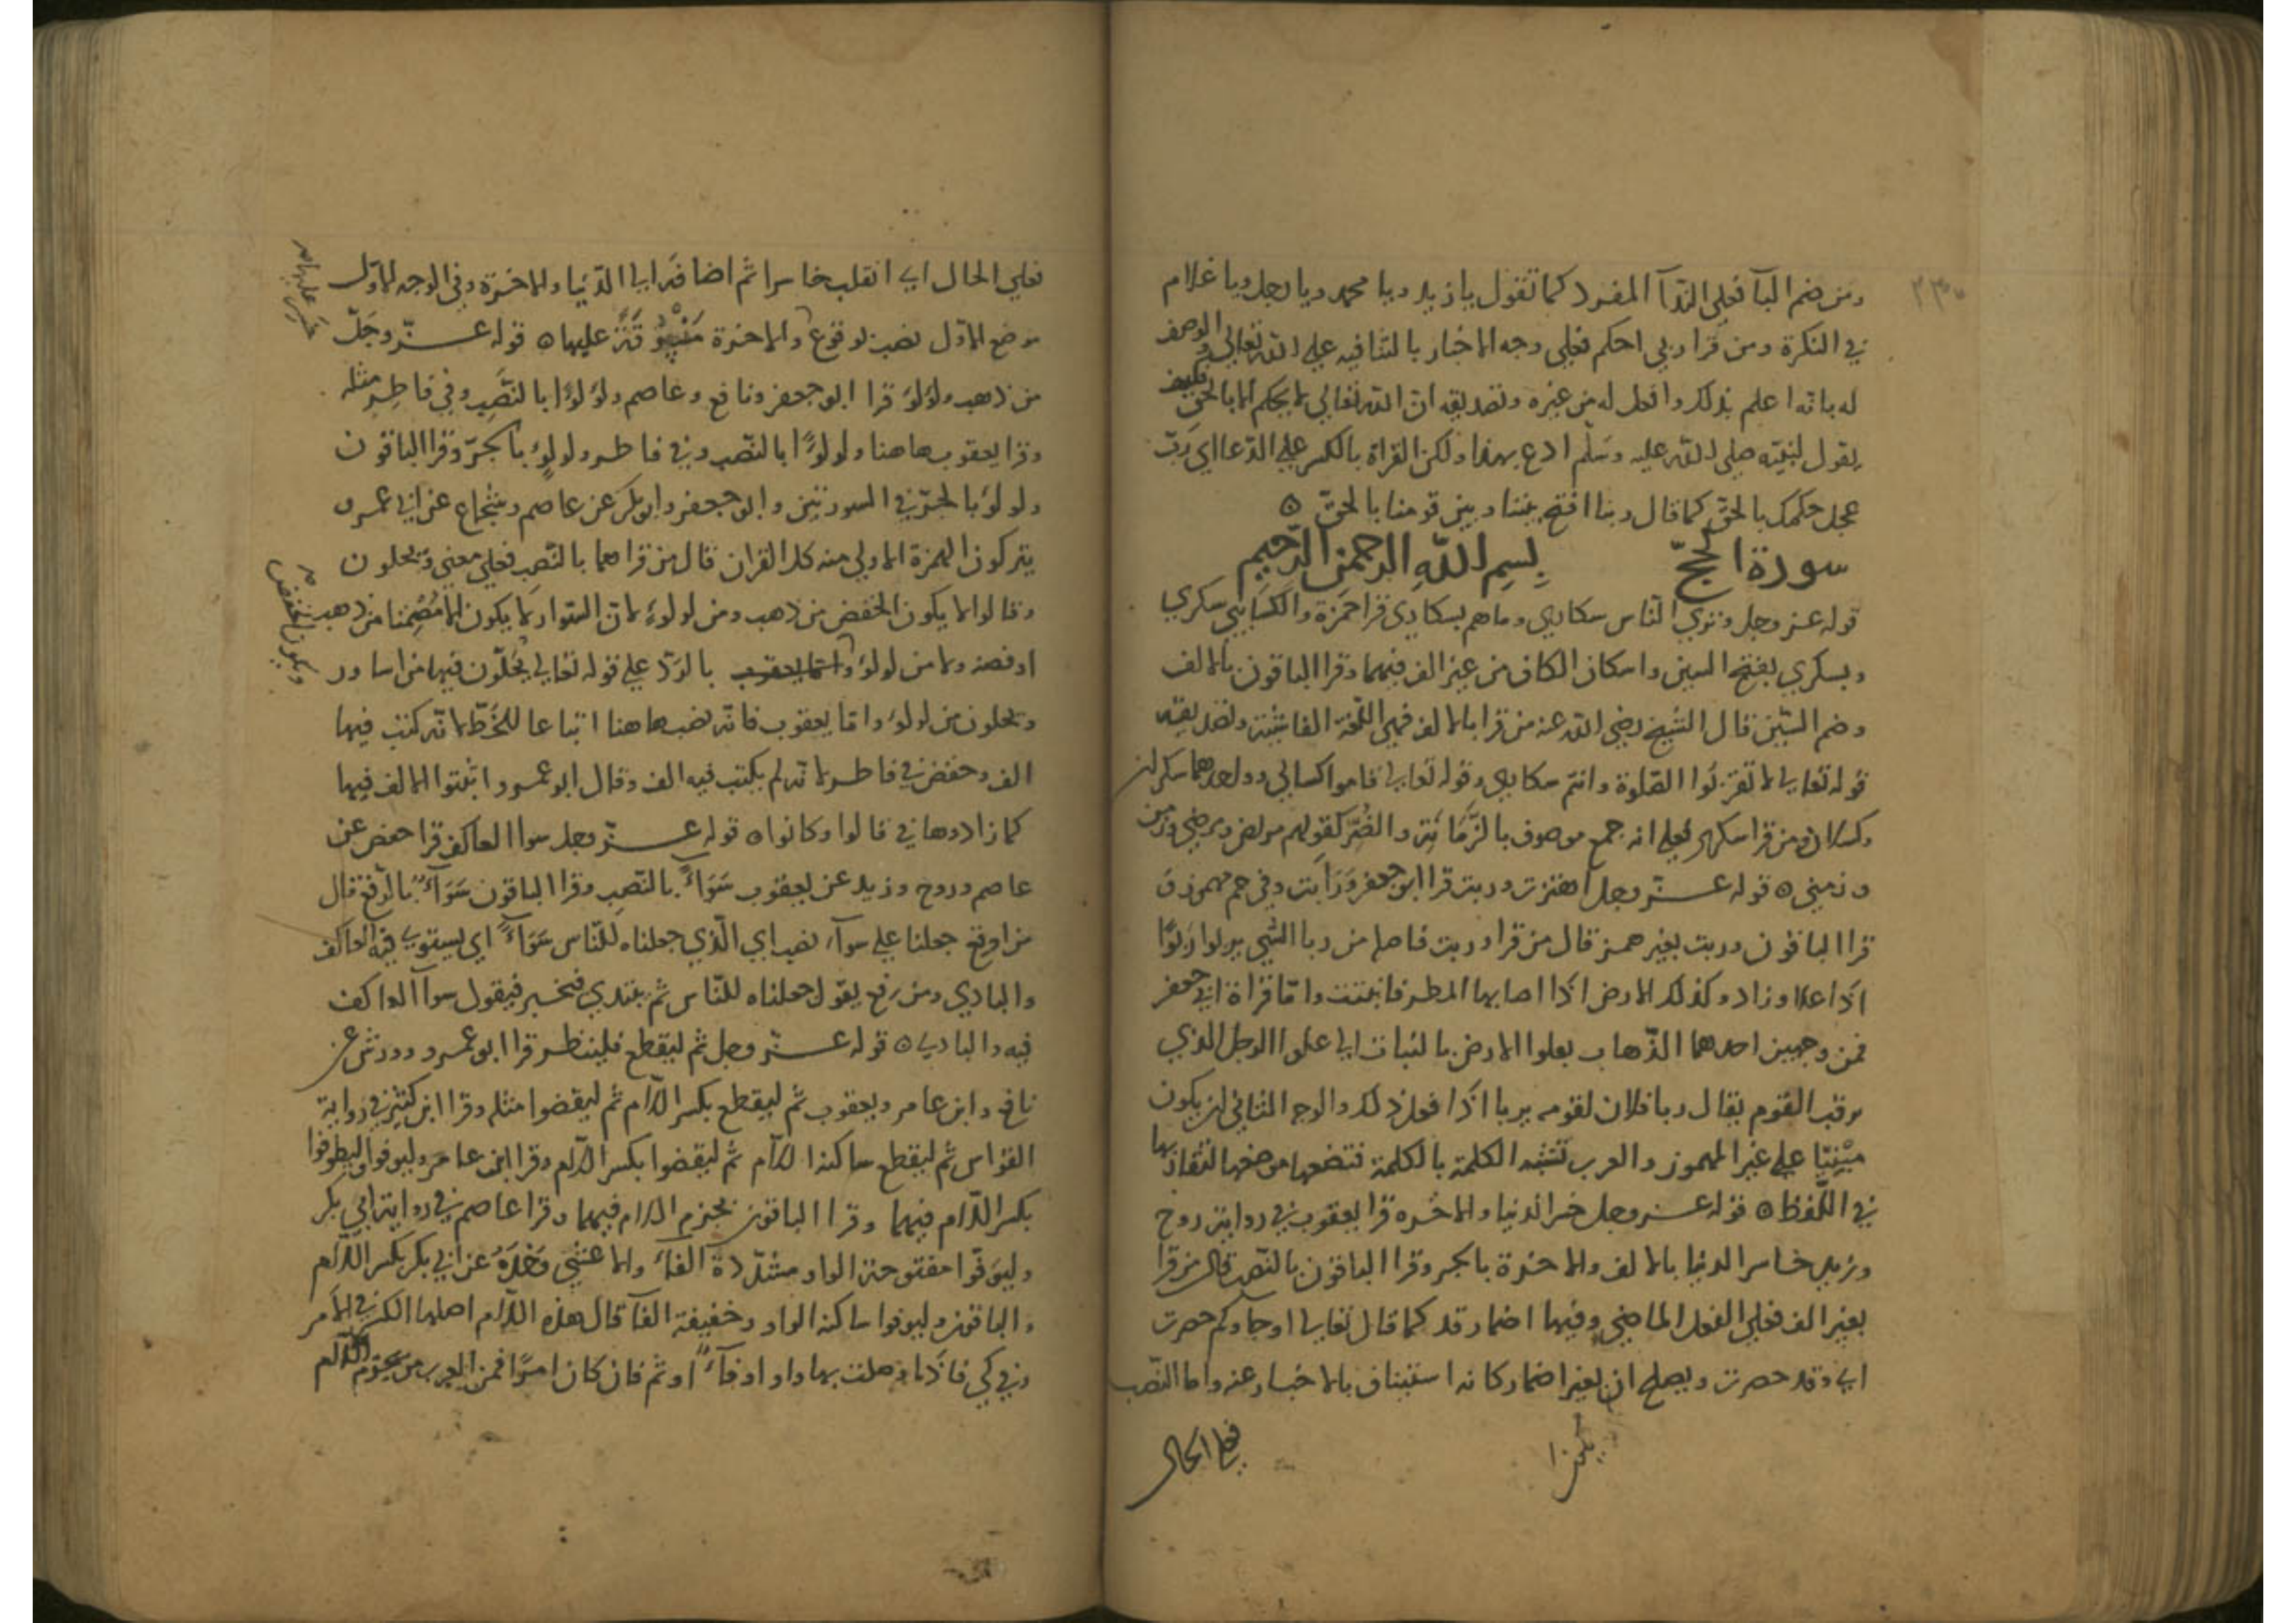 ومن ضم البآ فعلي الندآ المفرد كما تقول يا زيد ويا محمد ويا رجل ويا غلام
في النكرة ومن قرا ربي احكم فعلي وجه الاخبار بالثنا فيه علي الله تعالي والوصف
له بانه اعلم بذلك وافعل له من غيره وتصديقه ان الله تعالي لا يحكم الا بالحق فكيف
يقول لنبيّه صلى الله عليه وسلّم ادع بهذا ولكن القراة بالكسر علي الدعا اي ربّ
عجل حكمك بالحق كما قال ربنا افتح بيننا وبين قومنا بالحقّ ه
سورة الحجّ بسم الله الرحمن الرّحيم
قوله عز وجل وتري الناس سكاري وما هم بسكاري قرا حمزة والكسايي سكري
وبسكري بفتح السين واسكان الكاف من غير الف فيهما وقرا الباقون بالالف
وضم السّين قال الشيخ رضي الله عنه من قرا بالالف فهي اللّغة الفاشية وتصديقه
قوله تعالي لا تقربوا الصّلوة وانتم سكاري وقوله تعالي قاموا كسالي وواحدهما سكران
وكسلان ومن قرا سكري فعلي انه جمع موصوف بالزّمانة والضّر كقولهم مريض ومرضي وزمن
وزمني ه قوله عزّ وجل اهتزت وربت قرا ابو جعفر وربأت وفي حم مهموزة
قرا الباقون وربت بغير همز قال من قرا وربت فاصله من ربا الشي يربوا ربوًا
اذا علا وزاد وكذلك الارض اذا اصابها المطر فانبتت وامّا قراة ابي جعفر
فمن وجهين احدهما الذّهاب بعلوا الارض بالنبات الي علوا الرجل الذي
يرقب القوم يقال ربا فلان لقومه يربا اذا فعل ذلك والوجه الثاني ان يكون
مبنيّا علي غير المهموز والعرب تشبه الكلمة بالكلمة فتضعها موضعها لتقاربها
في اللّفظ ه قوله عز وجل خسر الدنيا والاخره قرا يعقوب في رواية روح
وزيد خاسر الدنيا بالالف والاخرة بالجر وقرا الباقون بالنّصب قال من قرا
بغير الف فعلي الفعل الماضي وفيها اضمار قد كما قال تعالي او جاوكم حصرت
اي وقد حصرت ويصلح ان بغير اضمار كانه استيناف بالاخبار عنه واما النّصب
فعلي الحال
فعلي الحال اي انقلب خاسرا ثم اضافه الي الدّنيا والاخرة وفي الوجه الاوّل
موضع الاوّل نصب لوقوع والاخرة منسوقة عليها ه قوله عزّ وجلّ
من ذهب ولؤلؤ قرا ابو جعفر ونافع وعاصم ولؤلؤا بالنّصب وفي فاطر مثله
وقرا يعقوب هاهنا ولولؤًا بالنّصب وفي فاطر ولولؤٍ بالجرّ وقرا الباقون
ولولؤ بالجرّ في السورتين وابو جعفر وابو بكر عن عاصم وشجاع عن ابي عمرو
يتركون الهمزة الاولي منه كل القران قال من قراهما بالنّصب فعلي معني ويحلون
وقالوا لا يكون الخفض من ذهب ومن لولوء لان السّوار لا يكون الا مُضمنا من ذهب
او فضة ولا من لولوء بالرّد علي قوله تعالي يُحلّون فيها من اساور
ويحلون من لولوء وامّا يعقوب فانه نصب هاهنا اتباعا للخطّ لانّه كتب فيها
الف وخفض في فاطر لانه لم يكتب فيه الف وقال ابو عمرو اثبتوا الالف فيها
كما زادوها في قالوا وكانوا ه قوله عزّ وجل سوا العاكف قرا حفص عن
عاصم وروح وزيد عن يعقوب سَوَاءً بالنّصب وقرا الباقون سَوَآءٌ بالرّفع قال
من اوقع جعلنا علي سوآء نصب اي الّذي جعلناه للنّاس سَوَآءً اي يستوي فيه العاكف
والبادي ومن رفع يقول جعلناه للنّاس ثم يبتدي فيخبر فيقول سوآ العاكف
فيه والبادي ه قوله عزّ وجل ثم ليقطع فلينظر قرا ابو عمرو وورش عن
نافع وابن عامر ويعقوب ثم ليقطع بكسر اللام ثم ليقضوا مثله وقرا ابن كثير في رواية
القواس ثم ليقطع ساكنة اللام ثم ليقضوا بكسر اللام وقرا ابن عامر وليوفوا وليطوفوا
بكسر اللّام فيهما وقرا الباقون بجزم اللام فيهما وقرا عاصم في رواية ابي بكر
وليوَفّوا مفتوحة الواو مشدّدة الفاء والاعشي وحْدَهُ عن ابي بكر بكسر اللّام
والباقون وليوفوا ساكنة الواو وخفيفة الفآ قال هذه اللّام اصلها الكسر في الامر
وفي كي فاذا وصلت بها واو او فآءً او ثم فان كان امرًا فمن العرب من يجزم اللّام
ويكون الخفض